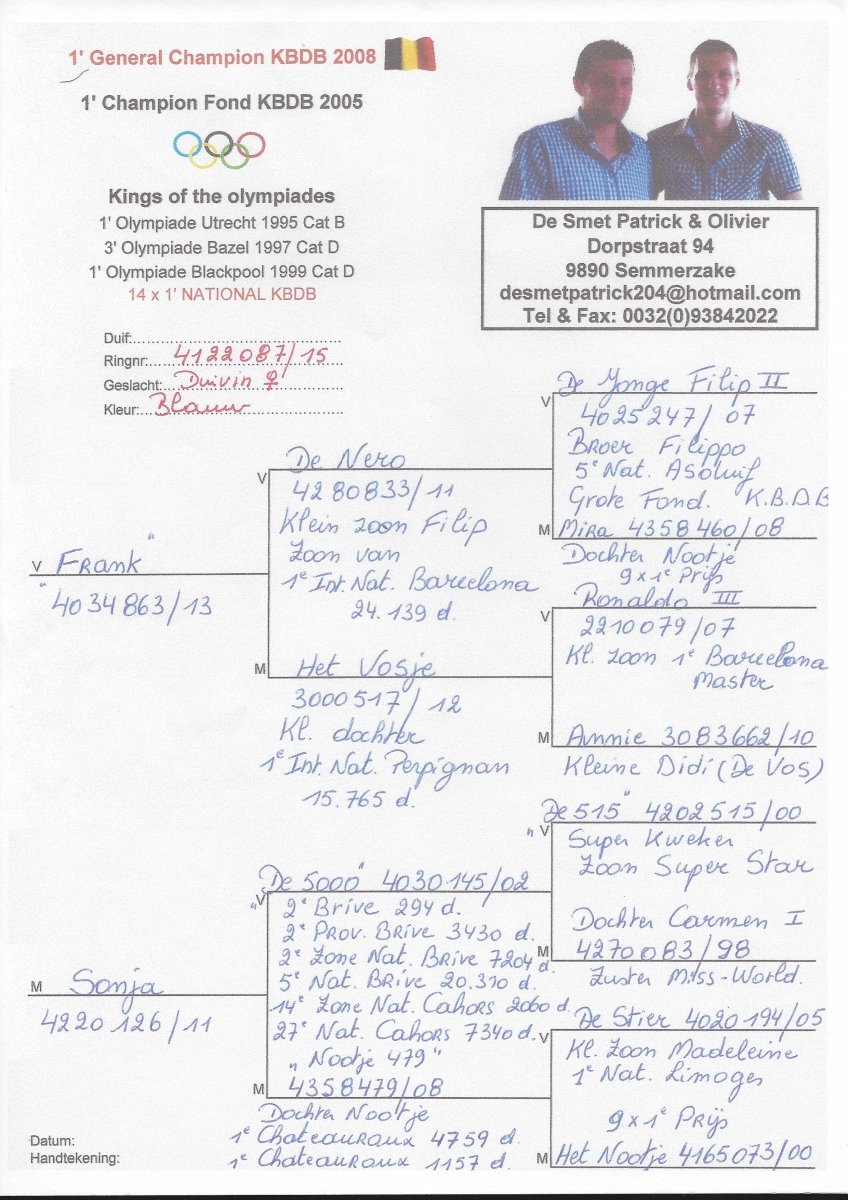 1' General Champion KBDB 2008
1' Champion Fond KBDB 2005
Kings of the olympiades
1' Olympiade Utrecht 1995 Cat B
3' Olympiade Bazel 1997 Cat D
1' Olympiade Blackpool 1999 Cat D
14 x 1' NATIONAL KBDB
De Smet Patrick & Olivier
Dorpstraat 94
9890 Semmerzake
desmetpatrick204@hotmail.com
Tel & Fax: 0032(0)93842022
Duif:
Ringnr: 4122087/15
Geslacht: Duivin ♀
Kleur: Blauw
V "Frank"
4034863/13
De Nero
V
4280833/11
Klein zoon Filip
Zoon van
1e Int. Nat. Barcelona
24.139 d.
M Het Vosje
3000517/12
Kl. dochter
1e Int. Nat. Perpignan
15.765 d.
De Jonge Filip II
V
4025247/07
Broer Filippo
5e Nat. Asduif
Grote Fond. K.B.D.B
M Mira 4358460/08
Dochter Nootje
9x1e Prijs
Ronaldo III
V
2210079/07
Kl. zoon 1e Barcelona
Master
M Annie 3083662/10
Kleine Didi (De Vos)
M Sonja
4220126/11
"De 5000" 4030145/02
V
2e Brive 294 d.
2e Prov. Brive 3430 d.
2e Zone Nat. Brive 7204 d.
5e Nat. Brive 20.310 d.
14e Zone Nat. Cahors 2060 d.
27e Nat. Cahors 7340 d.
"Nootje 479"
M 4358479/08
Dochter Nootje
1e Chateauroux 4759 d.
1e Chateauroux 1157 d.
"De 515" 4202515/00
V
Super Kweker
Zoon Super Star
Dochter Carmen I
M 4270083/98
Zuster Miss-World.
De Stier 4020194/05
V
Kl. Zoon Madeleine
1e Nat. Limoges
9x1e Prijs
M Het Nootje 4165073/00
Datum:
Handtekening: